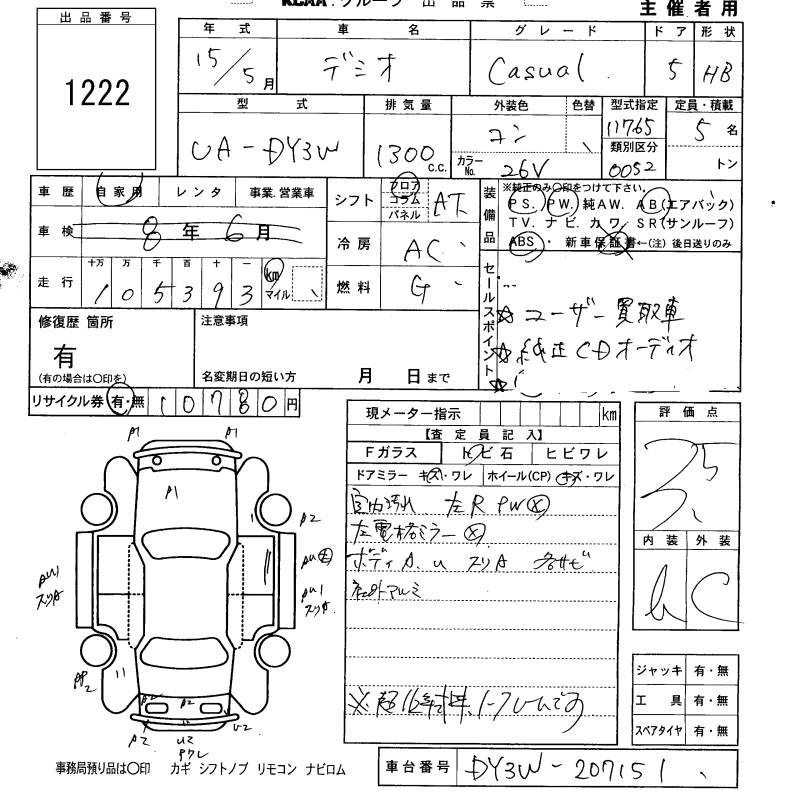 出品番号
1222
KCAA.グループ 出品票
主催者用
年式 車名 グレード ドア 形状
15/5月 デミオ Casual 5 HB
型式 排気量 外装色 色替 型式指定 定員・積載
UA-DY3W 1300c.c. コン 11765 5名
カラーNo. 26V 類別区分 0052 トン
車歴 自家用 レンタ 事業.営業車
シフト フロア コラム パネル AT
装備品 ※純正のみ○印をつけて下さい。
PS. PW. 純AW. AB(エアバック)
TV. ナビ. カワ. SR(サンルーフ)
ABS・新車保証書←(注)後日送りのみ
車検 8年6月
冷房 AC
走行 十万 万 千 百 十 一
105393 km マイル
燃料 G
セールスポイント
☆ユーザー買取車
☆純正CDオーディオ
☆
修復歴 箇所
有
(有の場合は○印を)
注意事項
名変期日の短い方 月 日まで
リサイクル券 有・無 10780円
現メーター指示 km
【査定員記入】
Fガラス トビ石 ヒビワレ
ドアミラー キズ・ワレ ホイール(CP) キズ・ワレ
室内汚れ 左R PW
左電格ミラー
ボディA.U スリA 各サビ
社外アルミ
評価点
内装 外装
C
A1 A1
A1
A2
AU1
スリA
AU1
スリA
A2
A2
A2
U2
U2
ジャッキ 有・無
工具 有・無
スペアタイヤ 有・無
事務局預り品は○印 カギ シフトノブ リモコン ナビロム
車台番号 DY3W-207151